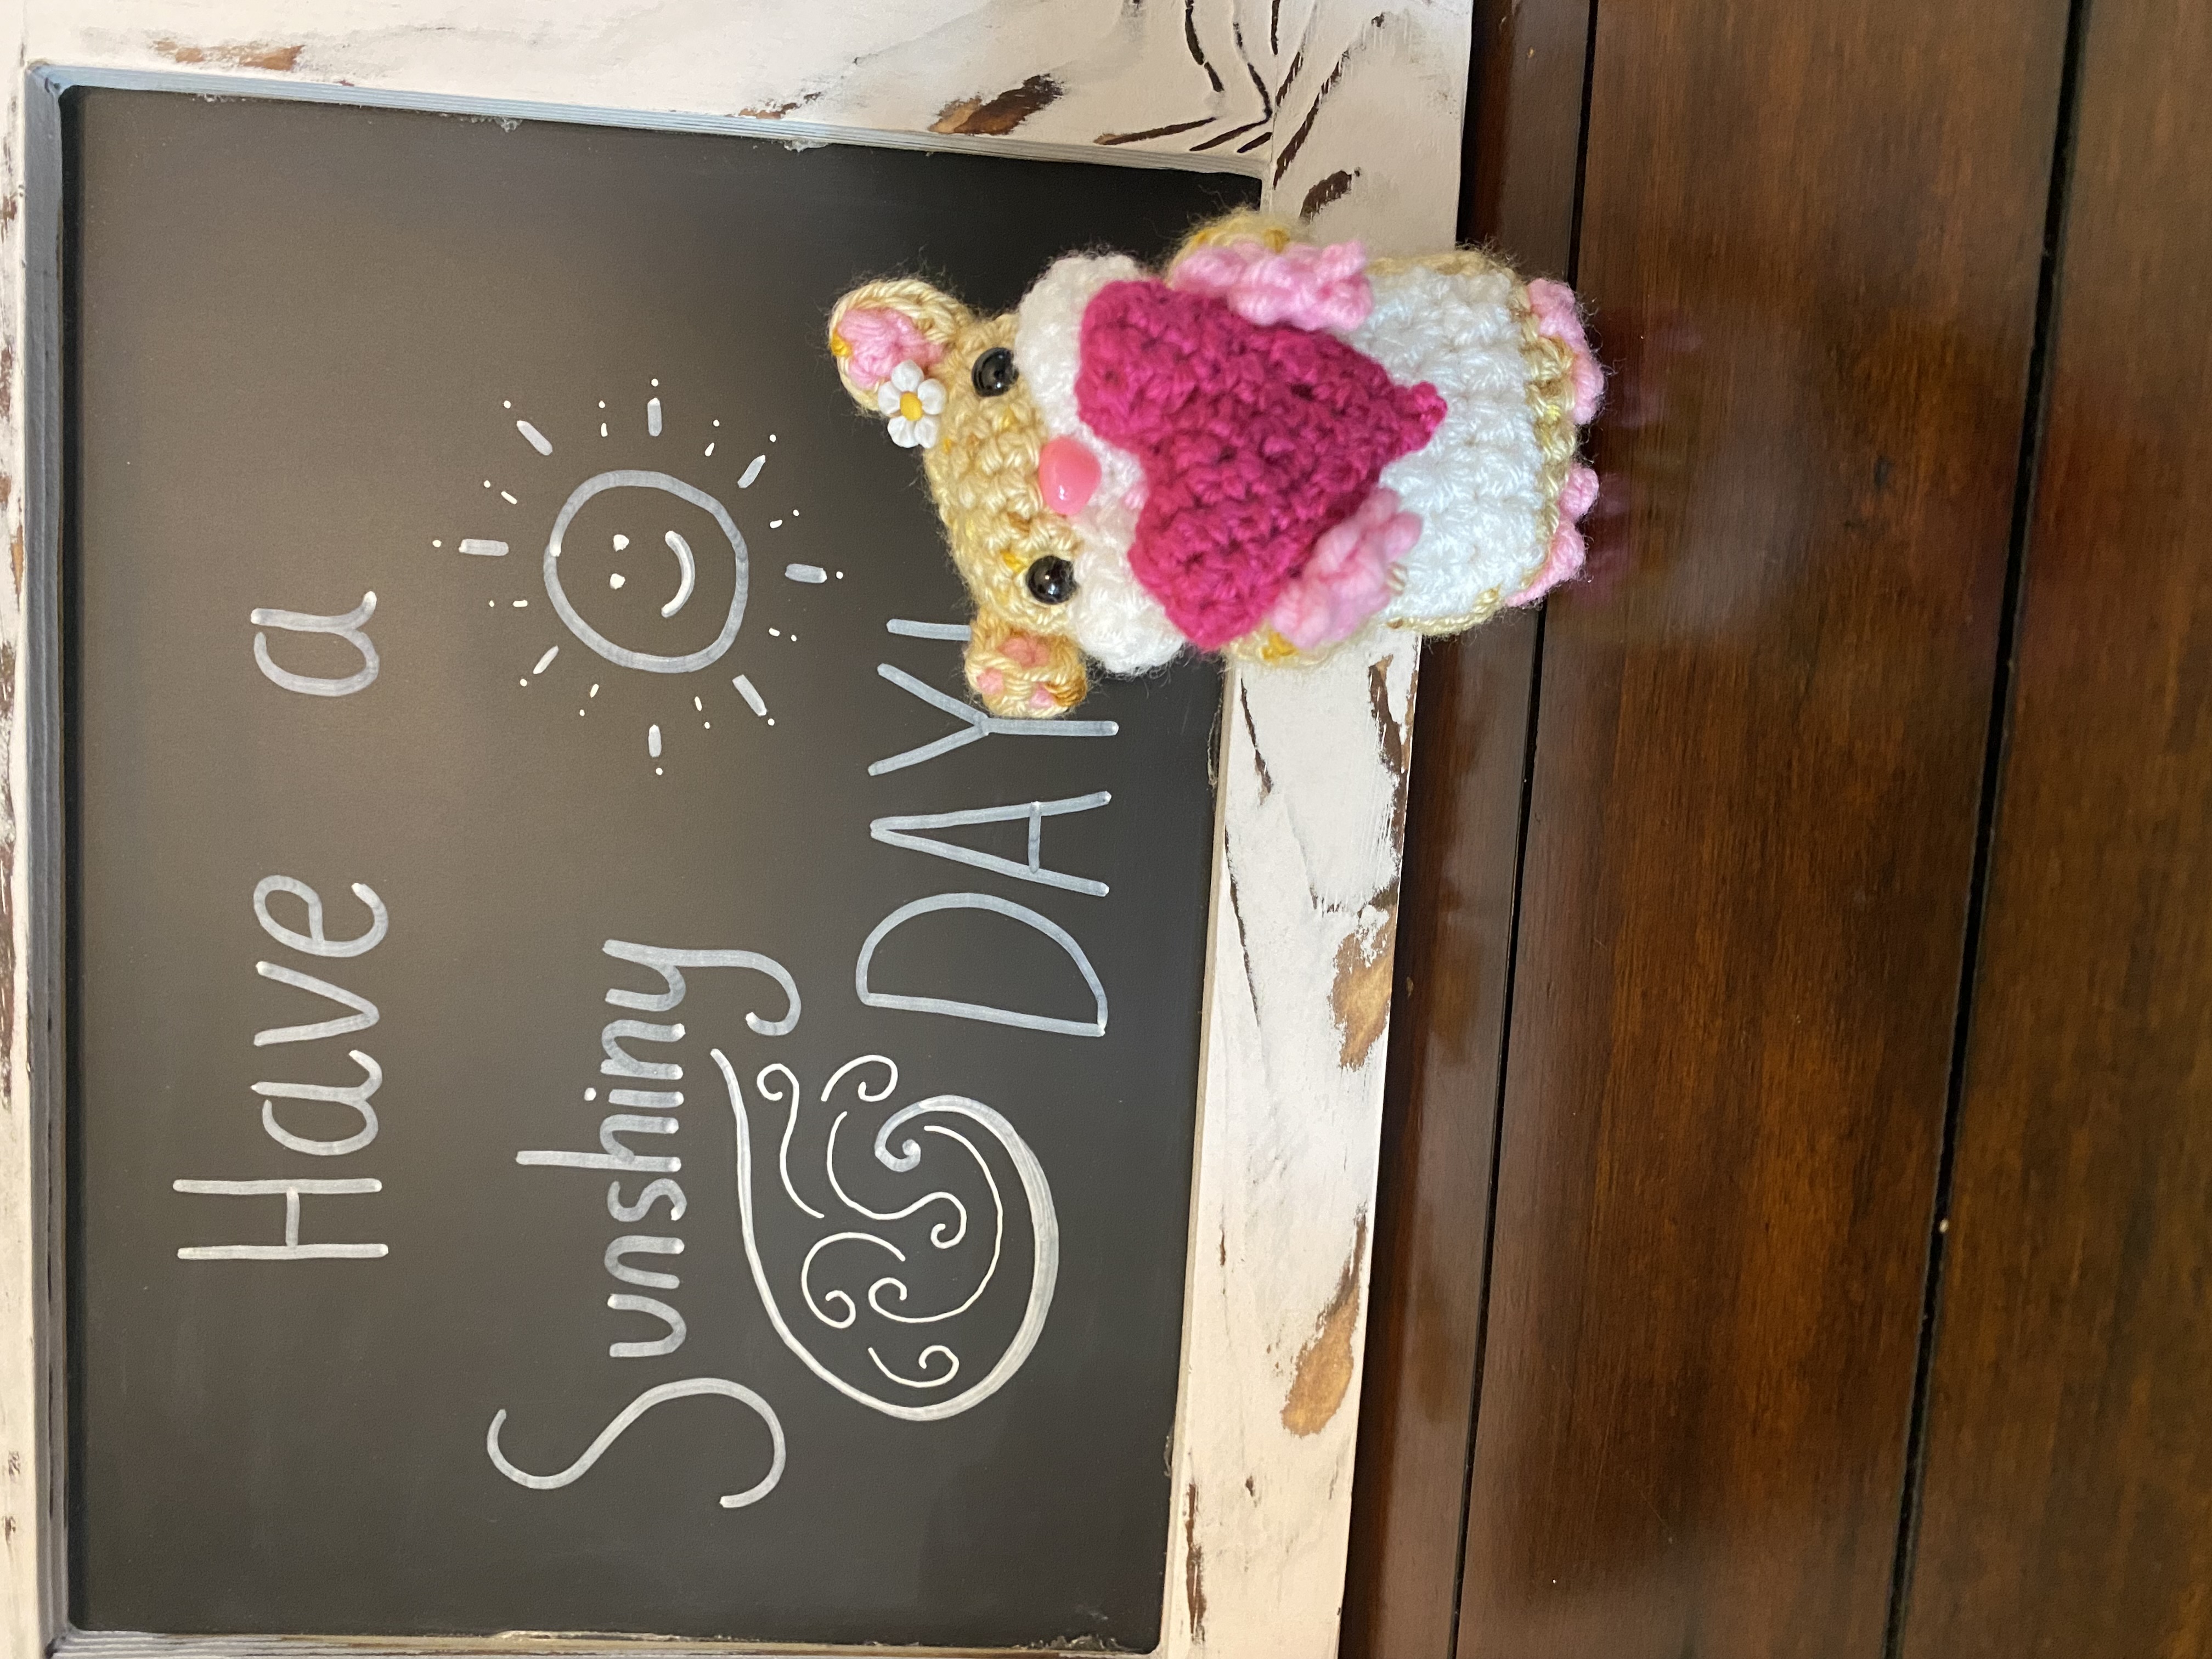 Have a
Sunshiny
DAY!